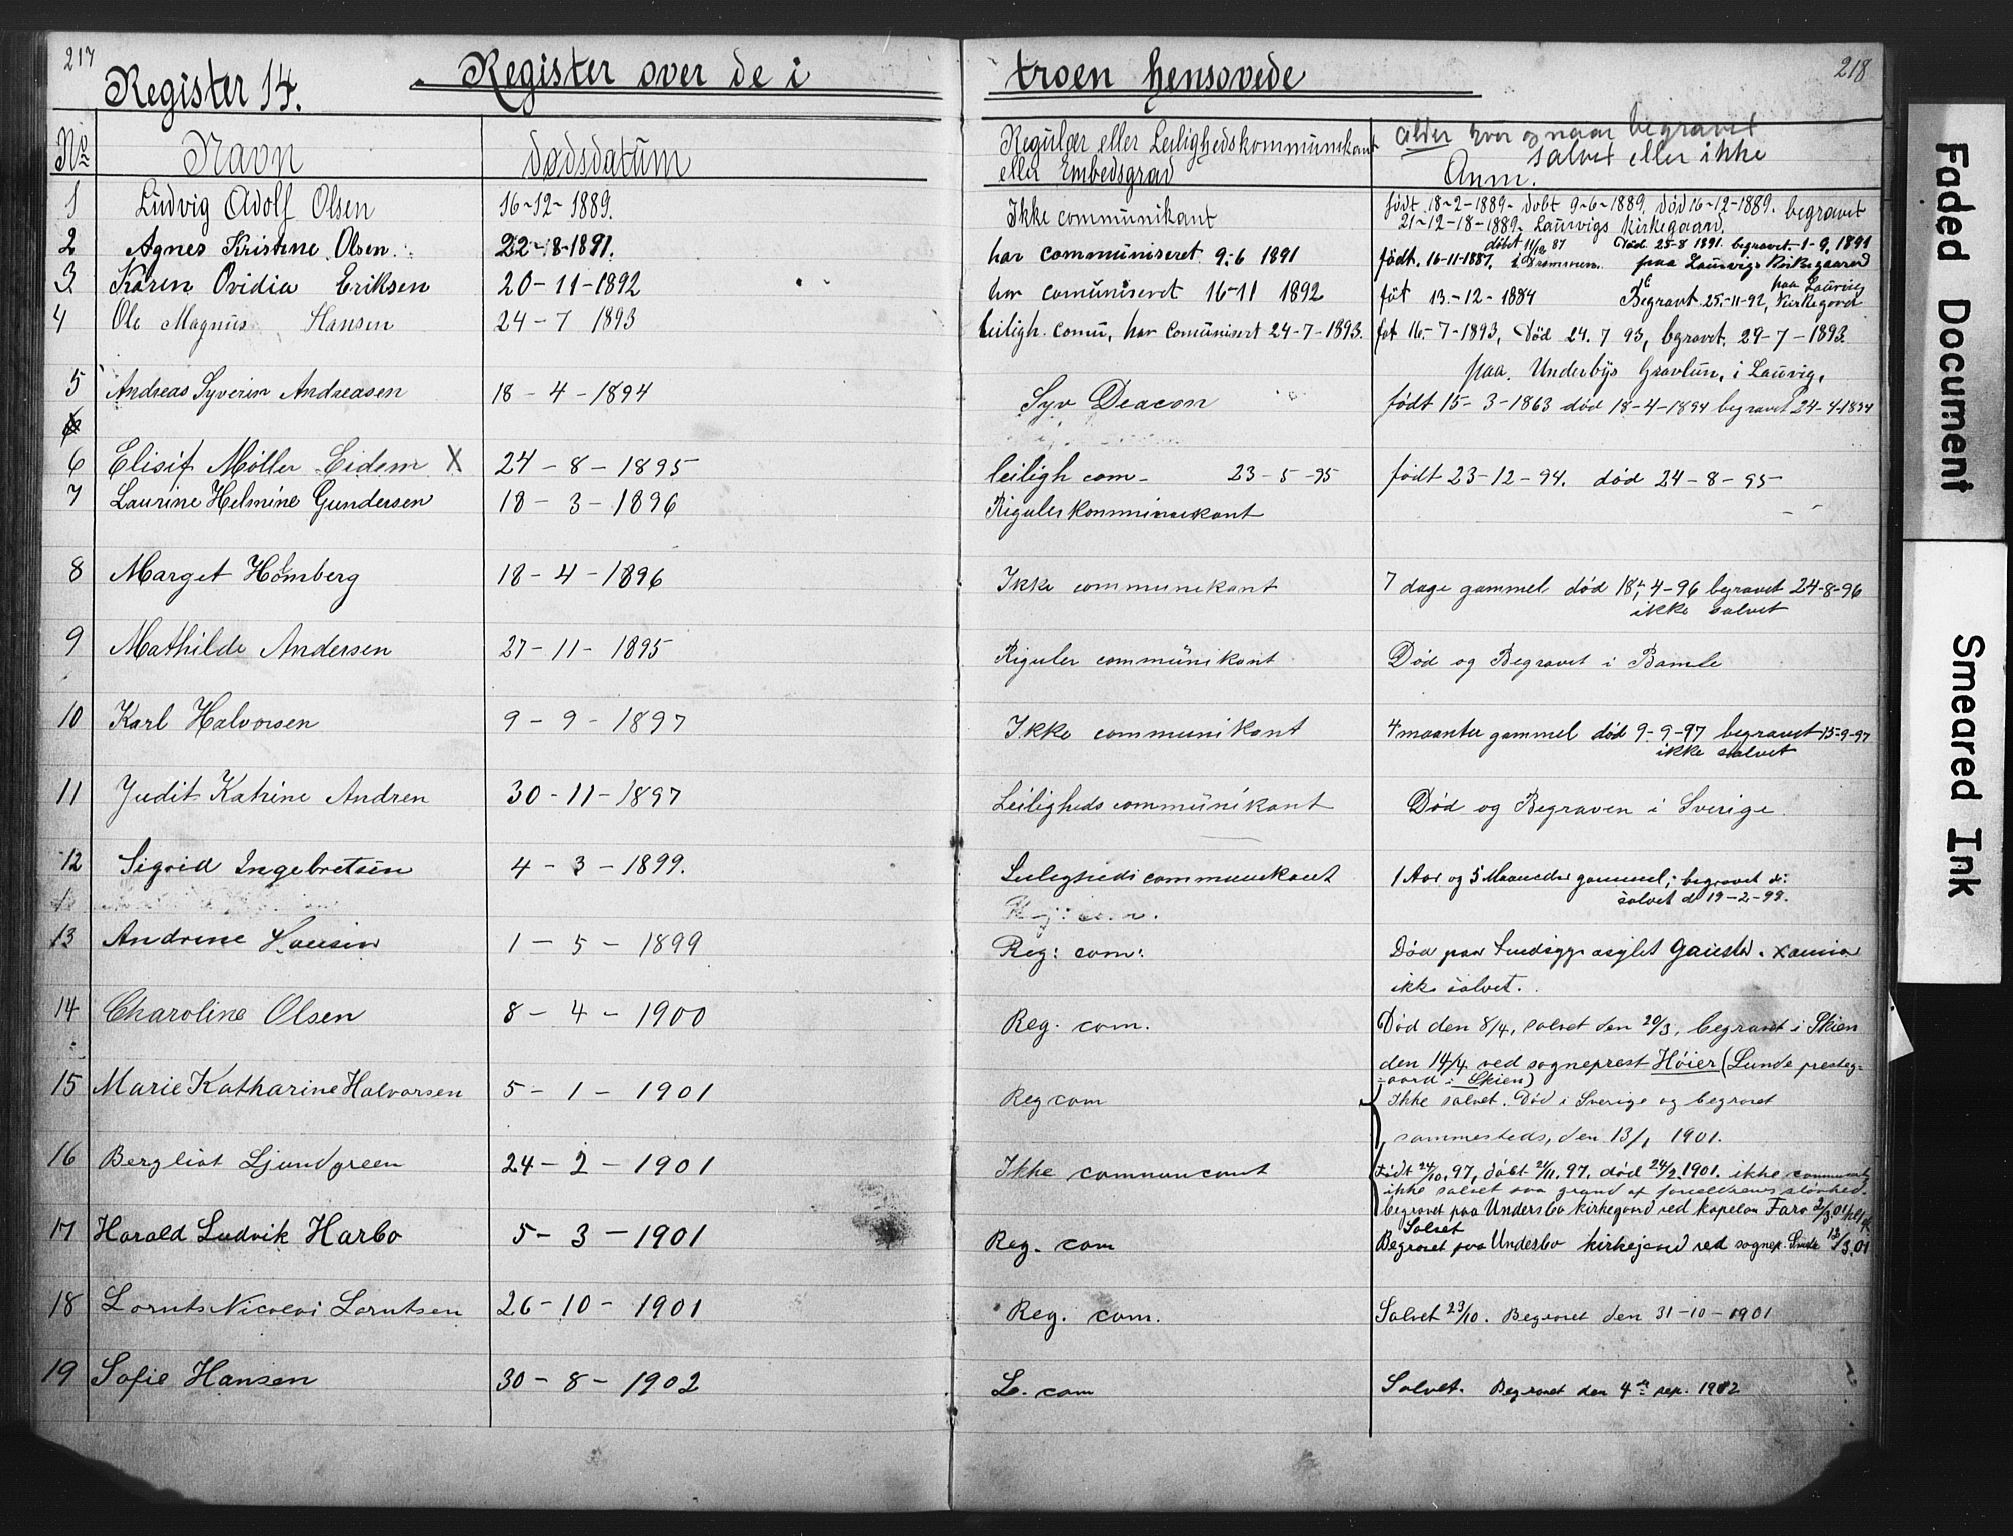 217
Register 14. Register over de i troen hensovede 218
No Navn dødsdatum Regulær eller Leilighedskommunikant eller Embedsgrad alder hvor og naar begravet salvet eller ikke Anm.
1 Ludvig Adolf Olsen 16-12-1889. Ikke communikant født 18-2-1889- døbt 9-6-1889. død 16-12-1889. begravet
21-12-18-1889. Laurvigs Kirkegaard.
2 Agnes Kristine Olsen. 22-8-1891. har communiseret 9-6 1891 født. 16-11-1887. døbt 11/12 87 i Drammen. Død 25-8 1891. begravet 1-9. 1891
paa Laurvigs Kirkegaard
3 Karen Ovidia Eriksen 20-11-1892 har comuniseret 16-11 1892 føt 13.-12-1884 Begravt. 25.-11-92, paa Laurvig Kirkegord
4 Ole Magnus Hansen 24-7 1893 leiligh. comu, har Comunisert 24-7-1893. føt 16-7-1893, Død 24. 7 93, begravet. 29-7-1893.
paa. Underbys Gravlun, i Laurvig.
5 Andreas Syverin Andreasen 18-4-1894 Syv Deacon født 15-3-1863 død 18-4-1894 begravet 24-4-1894
6 Elisif Møller Eidem X 24-8-1895 leiligh com- 23-5-95 født 23-12-94. død 24-8-95-
7 Laurine Helmine Gundersen 18-3-1896 Riguler kommunekant
8 Marget Holmberg 18-4-1896 Ikke communekant 7 dage gammel død 18-4-96 begravet 24-8-96
ikke salvet
9 Mathilde Andersen 27-11-1895 Riguler communikant Død og Begravet i Bamle
10 Karl Halvorsen 9-9-1897 Ikke communikant 4 maanter gammel død 9-9-97 begravet 15-9-97
ikke salvet
11 Judit Katrine Andren 30-11-1897 Leiligheds communikant Død og Begraven i Sverige.
12 Sigrid Ingebretsen 4-3-1899. Leiligheds communekant 1 Aar og 5 Maaneder gammel; begravet d:
salvet d 19-2-99.
13 Andrine 1-5-1899 Reg: com: Død paa asylet Gausta.
ikke salvet.
14 Charoline Olsen 8-4-1900 Reg. com. Død den 8/4, salvet den 20/3, begravet i Skien
den 14/4 ved sogneprest Höier (Lunde presteg-
-aard i Skien)
15 Marie Katharine Halvorsen 5-1-1901 Reg com Ikke salvet. Død i Sverige og begravet
sammesteds, den 13/1 1901.
16 Bergliot Ljundgreen 24-2-1901 Ikke communcant Født 24/10. 97, døbt 21/11. 97. død 24/2. 1901. ikke
ikke salvet paa grund af forældrenes sløvhed.
begravet paa Undersbo kirkegaard ved kapelan Farø 2/3. 01
17 Harald Ludvik Harbo 5-3-1901 Reg. com Salvet
Begravet paa Undesbo kirkejaard ved sognep. 12/3. 01
18 Lornts Nicolai Lorntsen 26-10-1901 Reg. com. Salvet 23/10. Begravet den 31-10-1901
19 Sofie Hansen 30-8-1902 L. com Salvet. Begravet den 4de sep. 1902
Faded Document
Smeared Ink